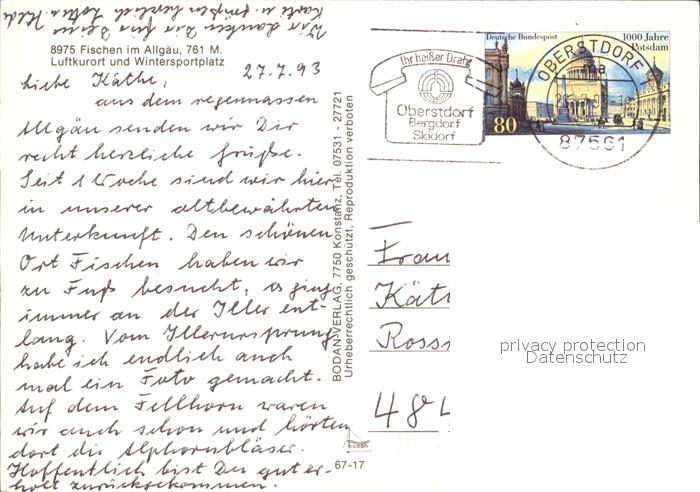 Wir danken Dir für Deine
Karte u. grüßen herzlich
8975 Fischen im Allgäu, 761 M.
Luftkurort und Wintersportplatz
27.7.93
Liebe Käthe,
aus dem regennassen
Allgäu senden wir Dir
recht herzliche Grüße.
Seit 1 Woche sind wir hier
in unserer altbewährten
Unterkunft. Den schönen
Ort Fischen haben wir
zu Fuß besucht, es ging
immer an der Iller ent-
lang. Vom Illerursprung
habe ich endlich auch
mal ein Foto gemacht.
Auf dem Fellhorn waren
wir auch schon und hörten
dort die Alphornbläser.
Hoffentlich bist Du gut er-
holt zurückgekommen.
BODAN-VERLAG, 7750 Konstanz, Tel. 07531 - 27721
Urheberrechtlich geschützt, Reproduktion verboten
bodan
67-17
Ihr heißer Draht
Oberstdorf
Bergdorf
Skidorf
Deutsche Bundespost
1000 Jahre
Potsdam
80
OBERSTDORF
87561
Frau
Kät
Ross
privacy protection
Datenschutz